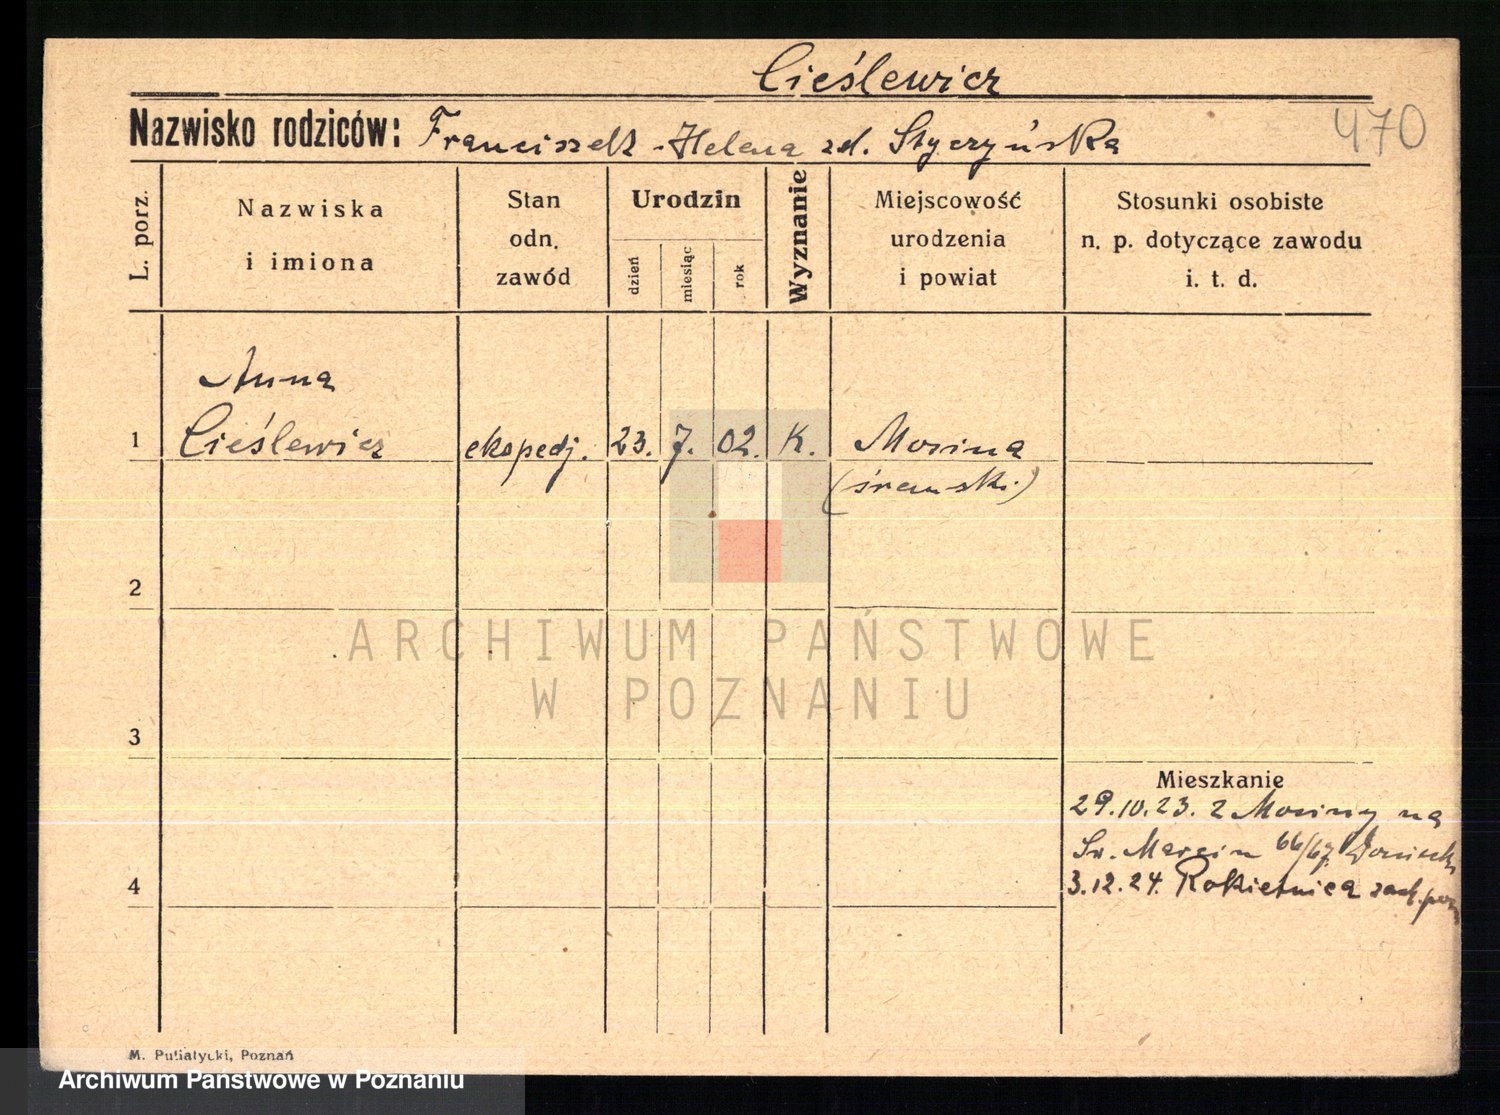 Cieślewicz
Nazwisko rodziców: Franciszek - Helena zd. Styczyńska
470
L. porz.
Nazwiska
i imiona
Stan
odn.
zawód
Urodzin
dzień
miesiąc
rok
Wyznanie
Miejscowość
urodzenia
i powiat
Stosunki osobiste
n. p. dotyczące zawodu
i. t. d.
Anna
1 Cieślewicz ekspedj. 23. 7. 02. K. Mosina
(śremski)
2
3
4
Mieszkanie
29.10.23. z Mosiny na
Św. Marcin 66/67
3.12.24. Rokietnica zach. pozn
ARCHIWUM PAŃSTWOWE
W POZNANIU
M. Putiatycki, Poznań
Archiwum Państwowe w Poznaniu